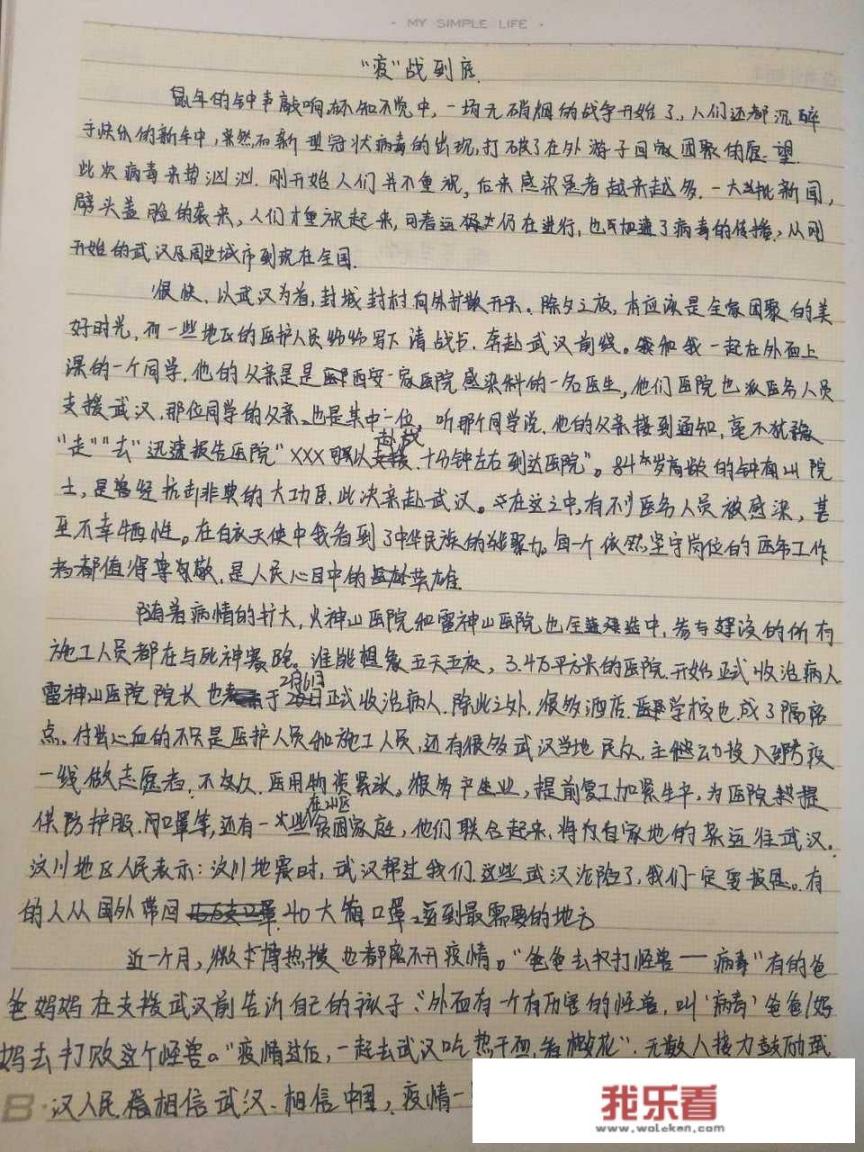 · MY SIMPLE LIFE ·
“疫”战到底
鼠年的钟声敲响,不知不觉中,一场无硝烟的战争开始了,人们还都沉醉
于快乐的新年中,果然,而新型冠状病毒的出现,打破了在外游子回家团聚的愿望.
此次病毒来势汹汹.刚开始人们并不重视,后来感染患者越来越多.一大批新闻,
劈头盖脸的袭来,人们才重视起来,可春运仍在进行,也加速了病毒的传播,从刚
开始的武汉及周边城市到现在全国.
很快.以武汉为首,封城封村向外扩散开来.除夕之夜,本应该是全家团聚的美
好时光,而一些地区的医护人员纷纷写下请战书.奔赴武汉前线。和我一起在外面上
课的一个同学,他的父亲是是西安一家医院感染科的一名医生,他们医院也派医务人员
支援武汉.那位同学的父亲也是其中一位,听那个同学说,他的父亲接到通知,毫不犹豫
“走”“去”迅速报告医院“XXX可以赴战.十分钟左右到达医院”。84岁高龄的钟南山院
士,是曾经抗击非典的大功臣.此次亲赴武汉。在这之中,有不少医务人员被感染,甚
至不幸牺牲。在白衣天使中我看到了中华民族的凝聚力。每一个依然坚守岗位的医务工作
者都值得尊敬,是人民心目中的英雄.
随着病情的扩大,火神山医院和雷神山医院也在建造中,参与建设的所有
施工人员都在与死神赛跑。谁能想象五天五夜,3.4万平方米的医院.开始正式收治病人
雷神山医院院长也于2月6日正式收治病人.除此之外,很多酒店.学校也成了隔离
点.付出心血的不只是医护人员和施工人员,还有很多武汉当地民众,主动投入到防疫
一线做志愿者.不仅仅.医用物资紧张.很多产业,提前复工加紧生产,为医院提
供防护服.口罩等,还有一些在山区贫困家庭,他们联合起来,将自家地的菜运往武汉.
汶川地区人民表示:汶川地震时,武汉帮过我们.这些武汉沦陷了,我们一定要报恩。有
的人从国外带回40大箱口罩.送到最需要的地方
近一个月,微博热搜也都离不开疫情。“爸爸去打怪兽——病毒”有的爸
爸妈妈在支援武汉前告诉自己的孩子:“外面有一个有厉害的怪兽,叫‘病毒’爸爸/妈
妈去打败这个怪兽。“疫情过后,一起去武汉吃热干面,看樱花”.无数人接力鼓励武
汉人民.相信武汉.相信中国,疫情一
我乐看
www.woleken.com